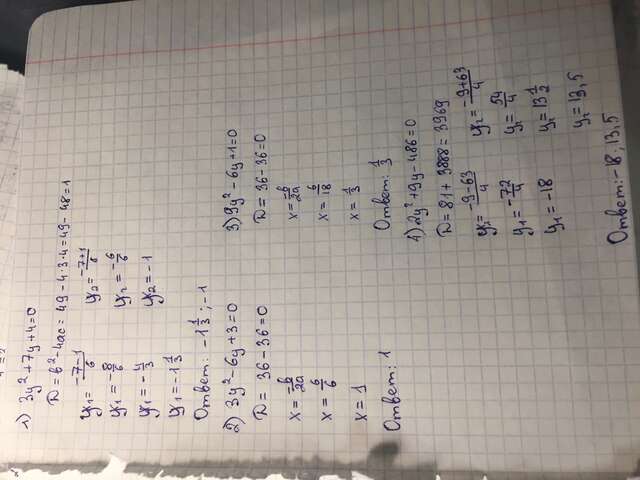 1) 3y²+7y+4=0
D=b²-4ac=49-4·3·4=49-48=1
y₁=-7-1/6 y₂=-7+1/6
y₁=-8/6 y₂=-6/6
y₁=-4/3 y₂=-1
y₁=-1 1/3
Ответ: -1 1/3; -1
2) 3y²-6y+3=0
D= 36-36=0
x=-b/2a
x=6/6
x=1
Ответ: 1
3) 9y²-6y+1=0
D=36-36=0
x=-b/2a
x=6/18
x=1/3
Ответ: 1/3
4) 2y²+9y-486=0
D=81+3888=3969
y₁=-9-63/4 y₂=-9+63/4
y₁=-72/4 y₂=54/4
y₁=-18 y₂=13 1/2
y₂=13,5
Ответ: -18; 13,5